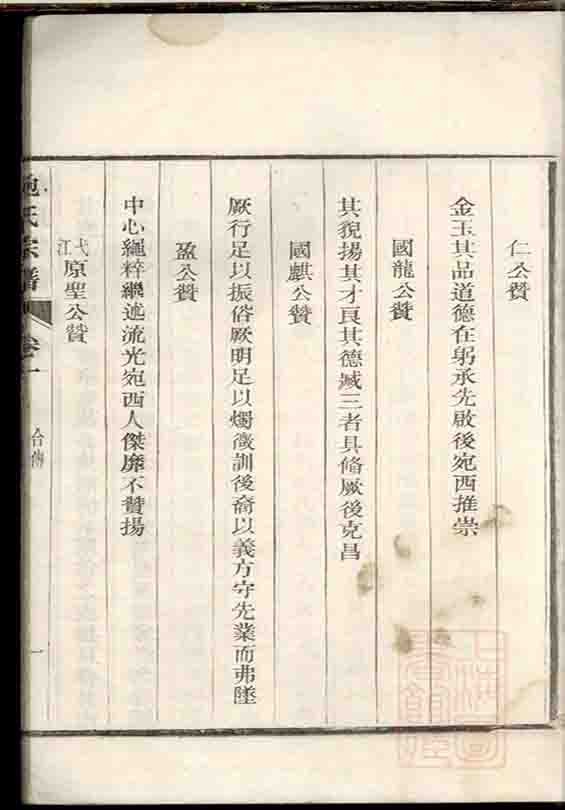 仁公贊
金玉其品道德在躬承先啟後宛西推崇
國龍公贊
其貌揚其才良其德臧三者具脩厥後克昌
國麒公贊
厥行足以振俗厥明足以燭微訓後裔以義方守先業而弗墜
盈公贊
中心繩粹繼述流光宛西人傑靡不贊揚
弌江原聖公贊
鮑氏宗譜
卷一
合傳
一
上海圖書館藏